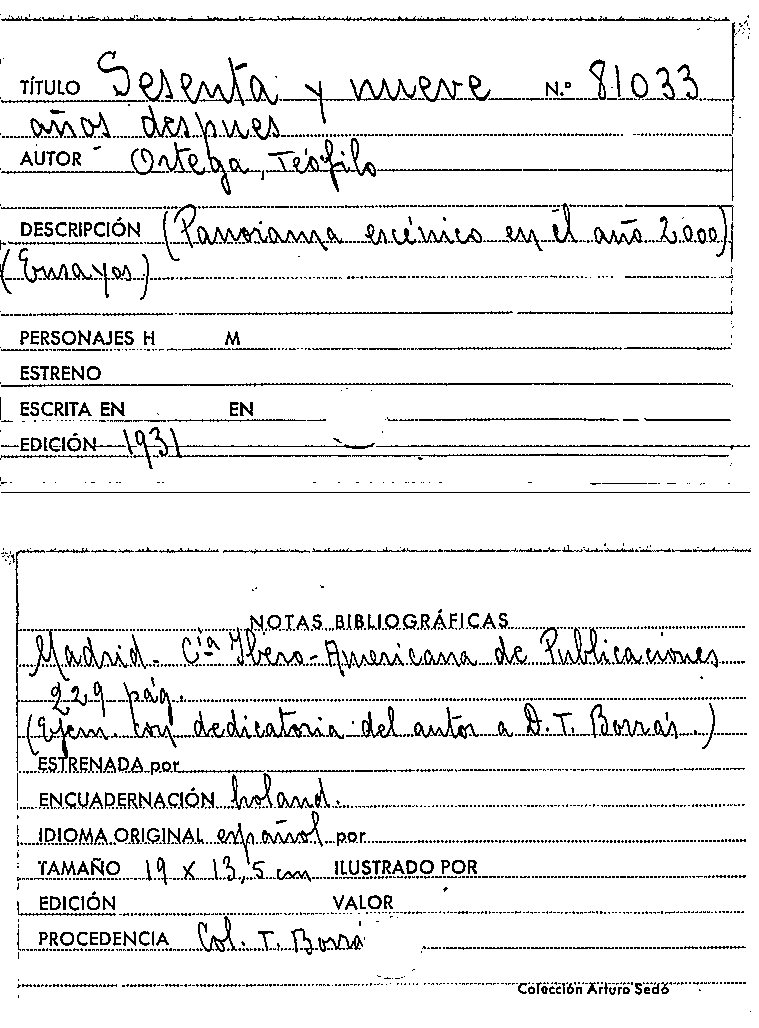 TÍTULO Sesenta y nueve N.º 81033
años despues
AUTOR Ortega, Teófilo
DESCRIPCIÓN (Panorama escénico en el año 2.000)
(Ensayos)
PERSONAJES H M
ESTRENO
ESCRITA EN EN
EDICIÓN 1931
NOTAS BIBLIOGRÁFICAS
Madrid. Cía Ibero-Americana de Publicaciones
229 pág.
(Ejem. con dedicatoria del autor a D. T. Borrás.)
ESTRENADA por
ENCUADERNACIÓN holand.
IDIOMA ORIGINAL español por
TAMAÑO 19 x 13,5 cm ILUSTRADO POR
EDICIÓN VALOR
PROCEDENCIA Col. T. Borrá
Colección Arturo Sedó